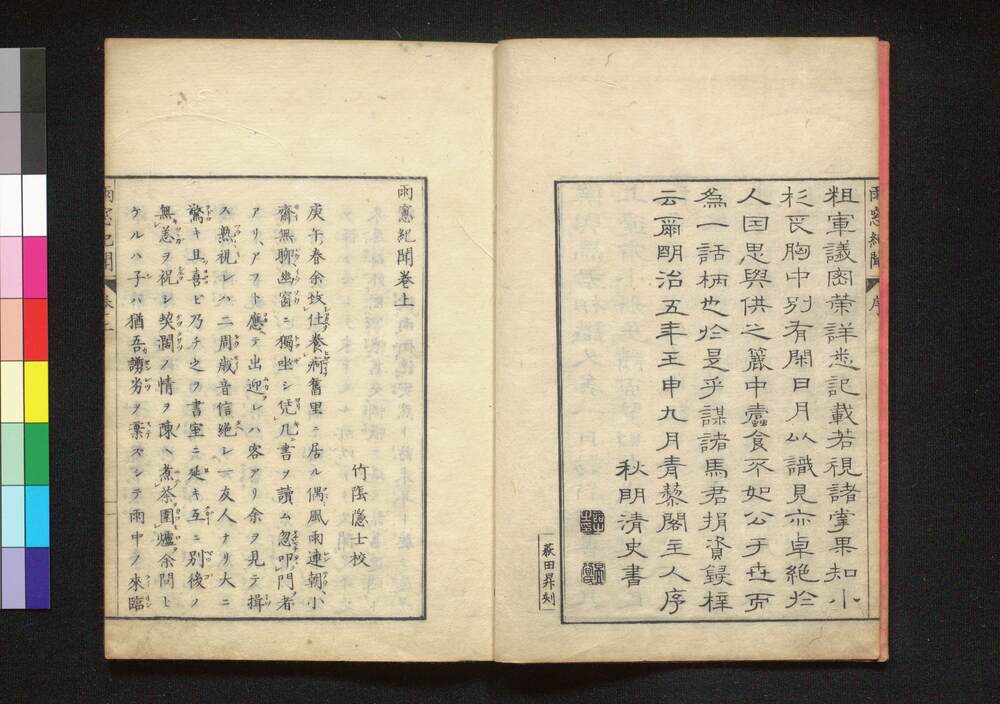 雨窓紀聞
序
粗軍議密策詳悉記載若視諸掌果知小
杉君胸中別有閑日月以識見亦卓絶於
人因思與供之簏中蠹食不如公于世而
為一話柄也於是乎謀諸馬君捐資録梓
云爾明治五年壬申九月青藜閣主人序
秋明清史書
萩田昇刻
雨窓紀聞巻上
竹陰隠士校
庚午春余致仕養痾舊里ニ居ル偶風雨連朝小
齋無聊幽窗ニ獨坐シ凭几書ヲ讀ム忽叩門者
アリ、アフト應テ出迎レハ客アリ余ヲ見テ揖
ス熟視レハ二周歳音信絶レ一友人ナリ大ニ
驚キ且喜ビ乃チ之ヲ書室ニ延キ互ニ別後ノ
無恙ヲ祝シ契濶ノ情ヲ陳ヘ煮茶圍爐余問ヒ
ケルハ子ハ猶吾譾劣ヲ棄スシテ雨中ノ來臨
雨窓紀聞